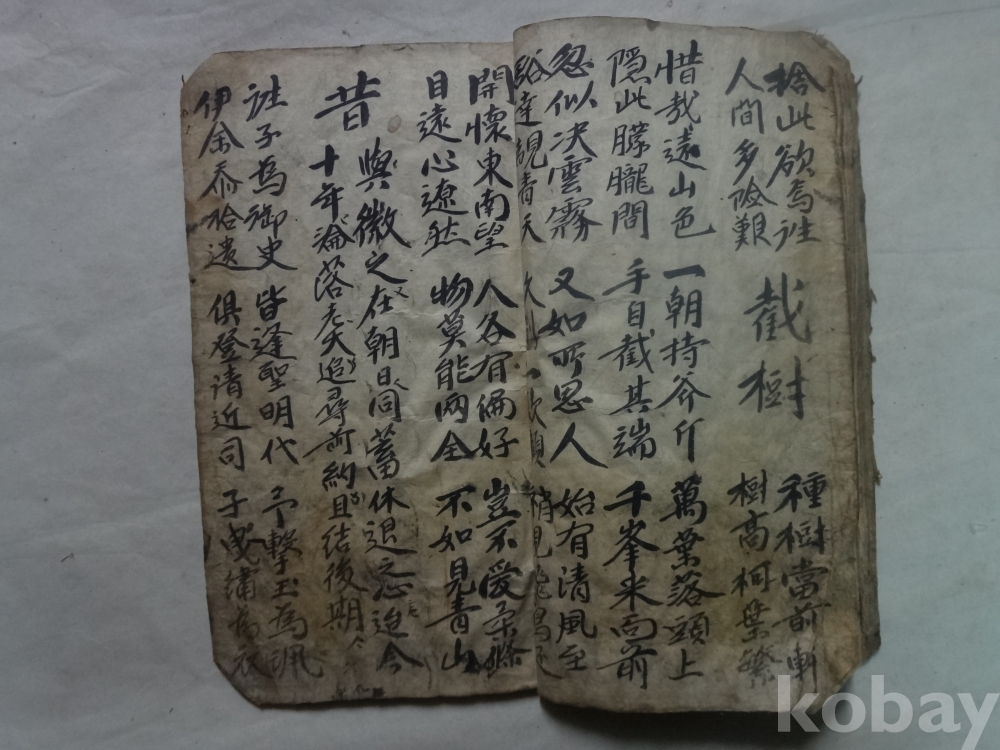 捨此欲焉往
人間多險艱
截樹
種樹當前軒
樹高柯葉繁
惜哉遠山色
隱此朦朧間
一朝持斧斤
手自截其端
萬葉落頭上
千峯来面前
忽似決雲霧
豁達覩青天
又如所思人
始有清風至
開懷東南望
目遠心遼然
人各有偏好
物莫能两全
豈不愛柔條
不如見青山
昔
與微之在朝日同蓄休退之心迨今
十年淪落老大追尋前約且結後期
往子為御史
伊余忝拾遺
皆逢聖明代
俱登清近司
予擊玉為珮
子曳繡為衣
kobay